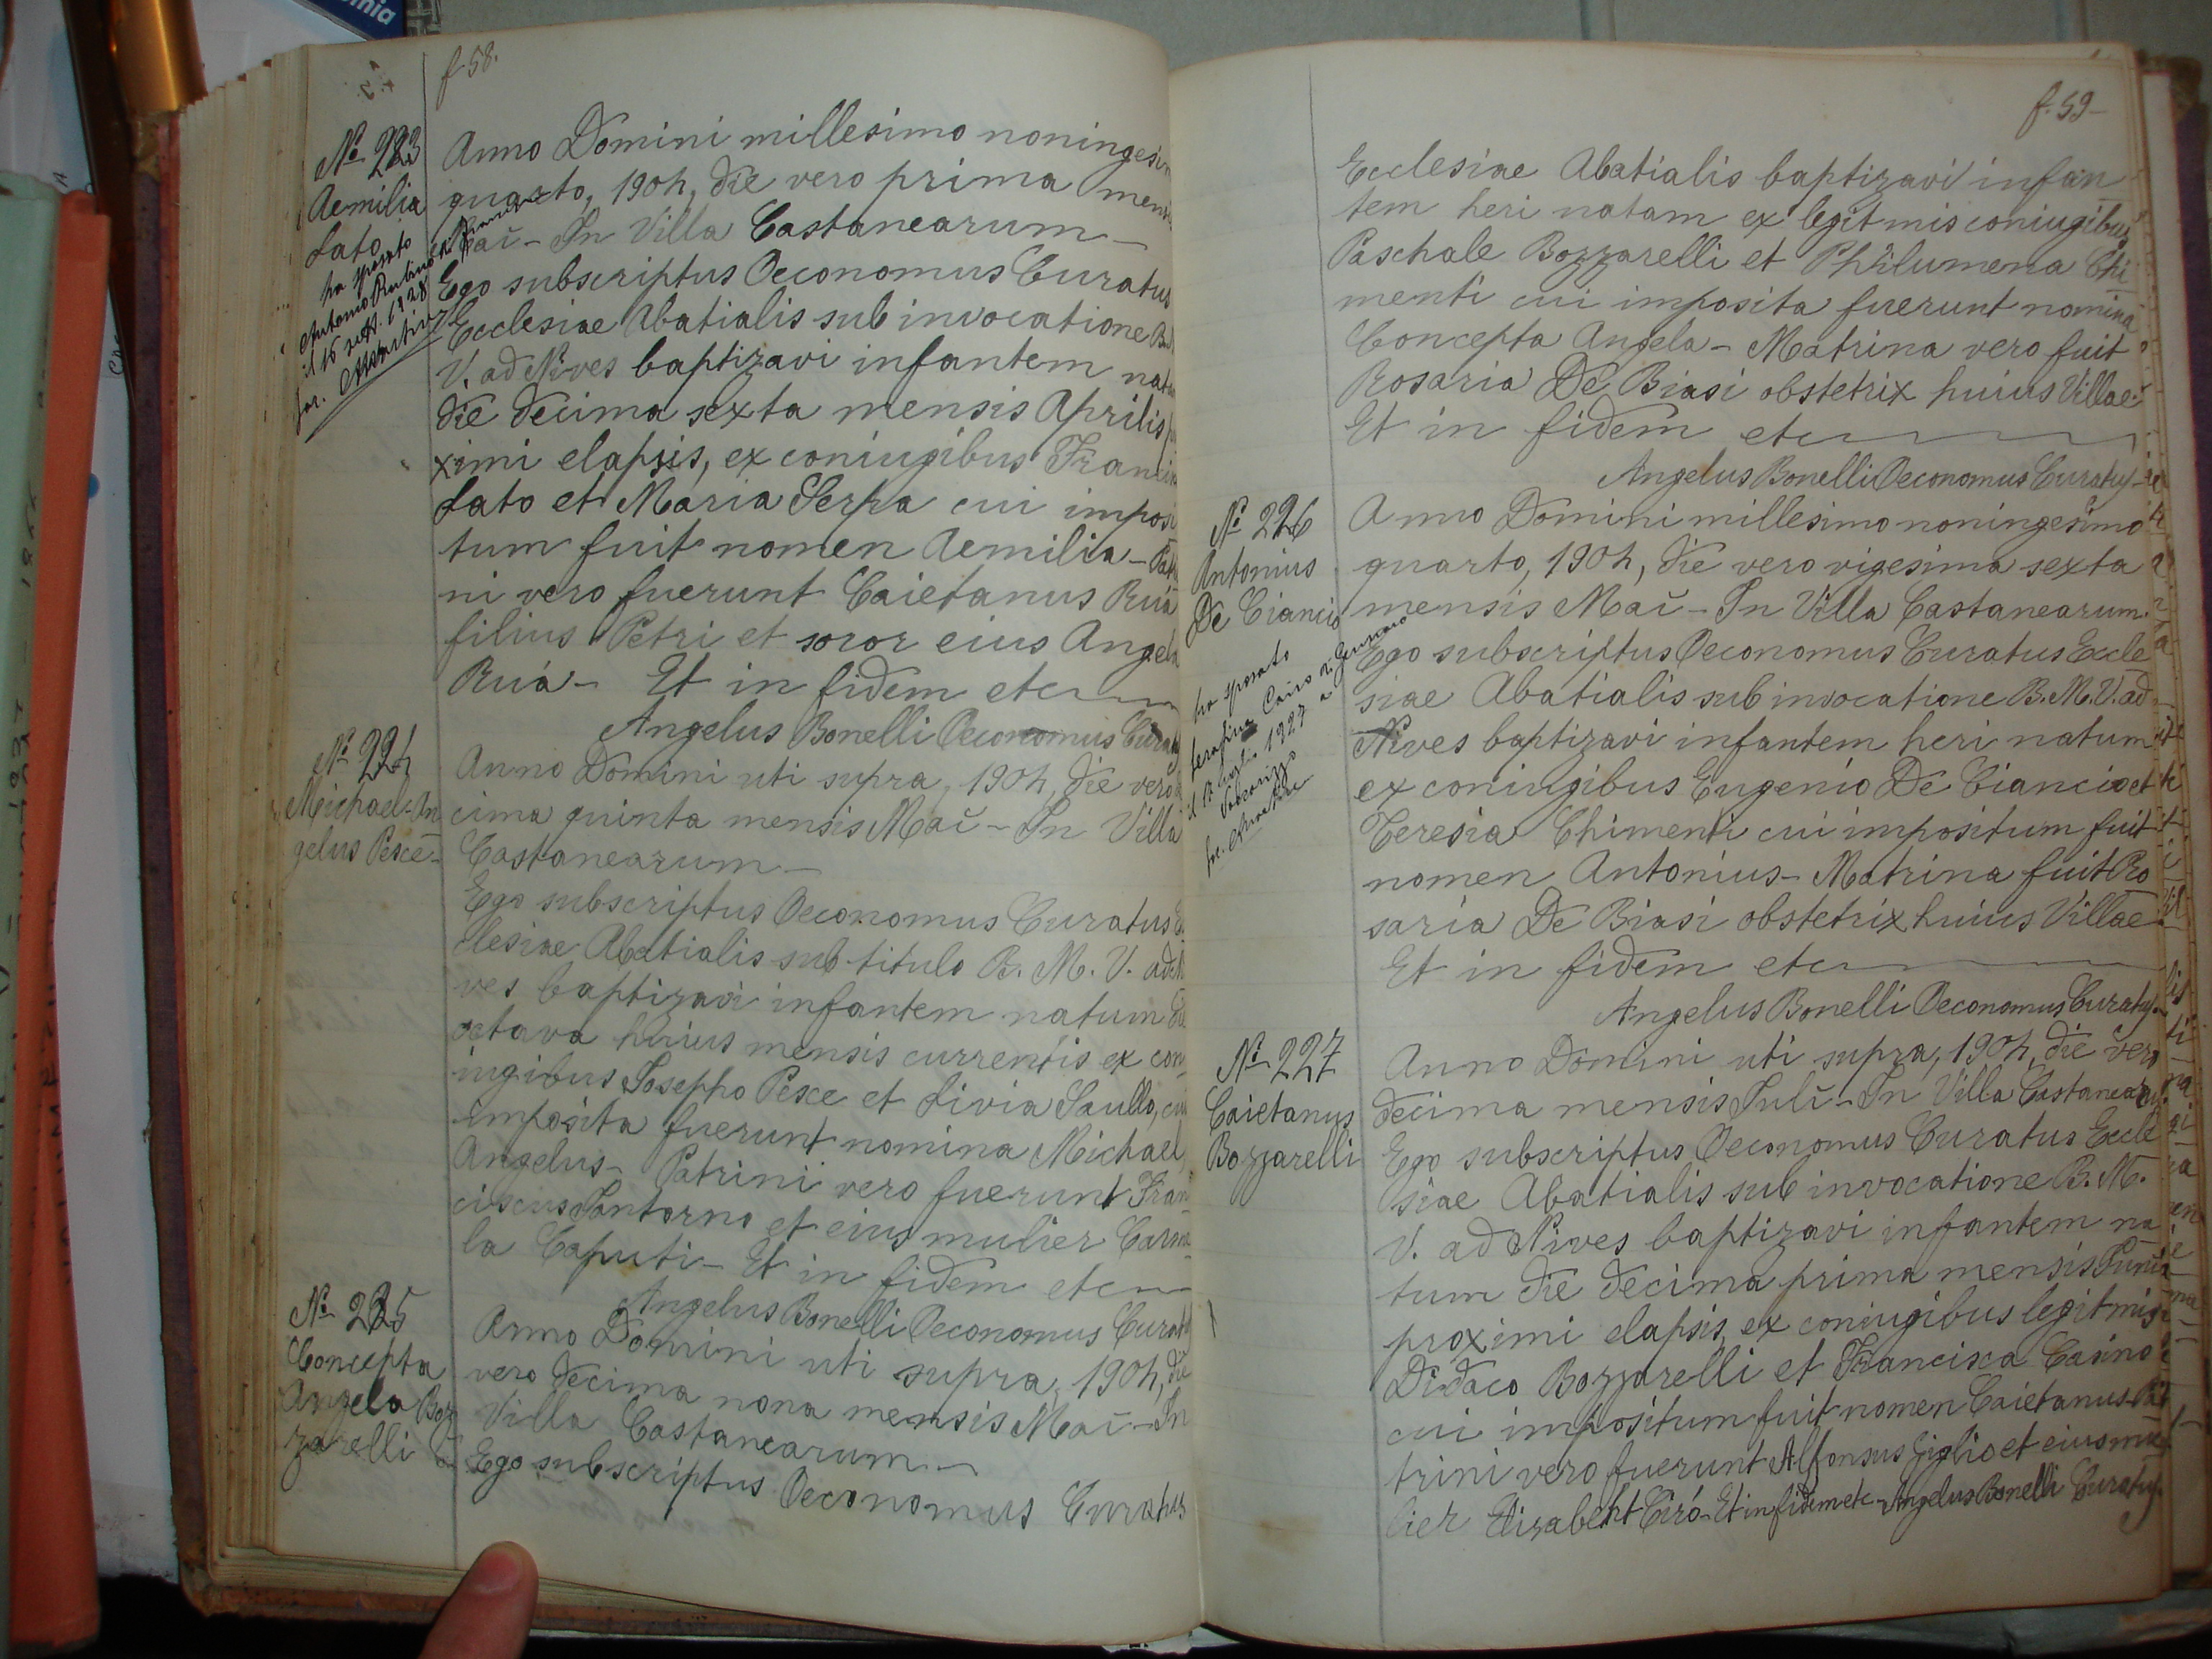 f. 58.
Nº 223
Aemilia
Lato
ha sposato
il 16 sett. 1928
Anno Domini millesimo noningesi
quarto, 1904, die vero prima mens
Maii - In Villa Castanearum -
Ego subscriptus Oeconomus Curatus
Ecclesiae Abatialis sub invocatione B.
V. ad Nives baptizavi infantem nata
die decima sexta mensis Aprilis
ximi elapsis, ex coniugibus Franci
Lato et Maria Serra cui imposi
tum fuit nomen Aemilia - Patri
ni vero fuerunt Caietanus Ruá
filius Petri et soror eius Angela
Ruá - Et in fidem etc
Angelus Bonelli Oeconomus Curatus
Nº 224
Michael-An
gelus Pesce-
Anno Domini uti supra, 1904, die vero
cima quinta mensis Maii - In Villa
Castanearum -
Ego subscriptus Oeconomus Curatus
clesiae Abatialis sub titulo B. M. V. ad Ni
ves baptizavi infantem natum die
octava huius mensis currentis ex con
iugibus Josepho Pesce et Livia Saullo, cui
imposita fuerunt nomina Michael,
Angelus - Patrini vero fuerunt Fran
ciscus Santorno et eius mulier Carme
la Caputi - Et in fidem etc
Angelus Bonelli Oeconomus Curatus
Nº 225
Concepta
Angela Boz
zarelli
Anno Domini uti supra, 1904, die
vero decima nona mensis Maii - In
Villa Castanearum -
Ego subscriptus Oeconomus Curatus
f. 59-
Ecclesiae Abatialis baptizavi infan
tem heri natam ex legitmis coniugibus
Paschale Bozzarelli et Philumena Chi
menti cui imposita fuerunt nomina
Concepta Angela - Matrina vero fuit
Rosaria De Biasi obstetrix huius Villae
Et in fidem etc
Angelus Bonelli Oeconomus Curatus-
Nº 226
Antonius
De Ciancio
ha sposato
Serafina Cairo di Gennaro
1927 a
Anno Domini millesimo noningesimo
quarto, 1904, die vero vigesima sexta
mensis Maii - In Villa Castanearum.
Ego subscriptus Oeconomus Curatus Eccle
siae Abatialis sub invocatione B. M. V. ad
Nives baptizavi infantem heri natum
ex coniugibus Eugenio De Ciancio et
Teresia Chimenti cui impositum fuit
nomen Antonius - Matrina fuit Ro
saria De Biasi obstetrix huius Villae
Et in fidem etc
Angelus Bonelli Oeconomus Curatus-
Nº 227
Caietanus
Bozzarelli
Anno Domini uti supra, 1904, die vero
decima mensis Julii - In Villa Castanearu
Ego subscriptus Oeconomus Curatus Eccle
siae Abatialis sub invocatione B. M.
V. ad Nives baptizavi infantem na
tum die decima prima mensis Junii
proximi elapsis, ex coniugibus legitmis
Didaco Bozzarelli et Francisca Casino
cui impositum fuit nomen Caietanus - Pa
trini vero fuerunt Alfonsus Giglio et eius mu
lier Elizabeht Ciró - Et in fidem etc - Angelus Bonelli Curatus